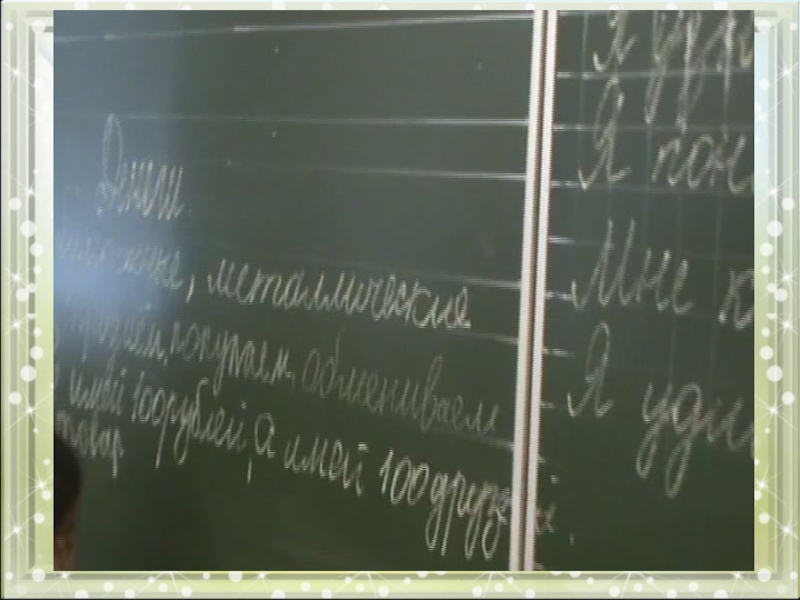 Деньги.
бумажные, металлические
продаём, покупаем, обмениваем
имей 100 рублей, а имей 100 друзей.
товар
Я
Я пон
Мне к
Я уди